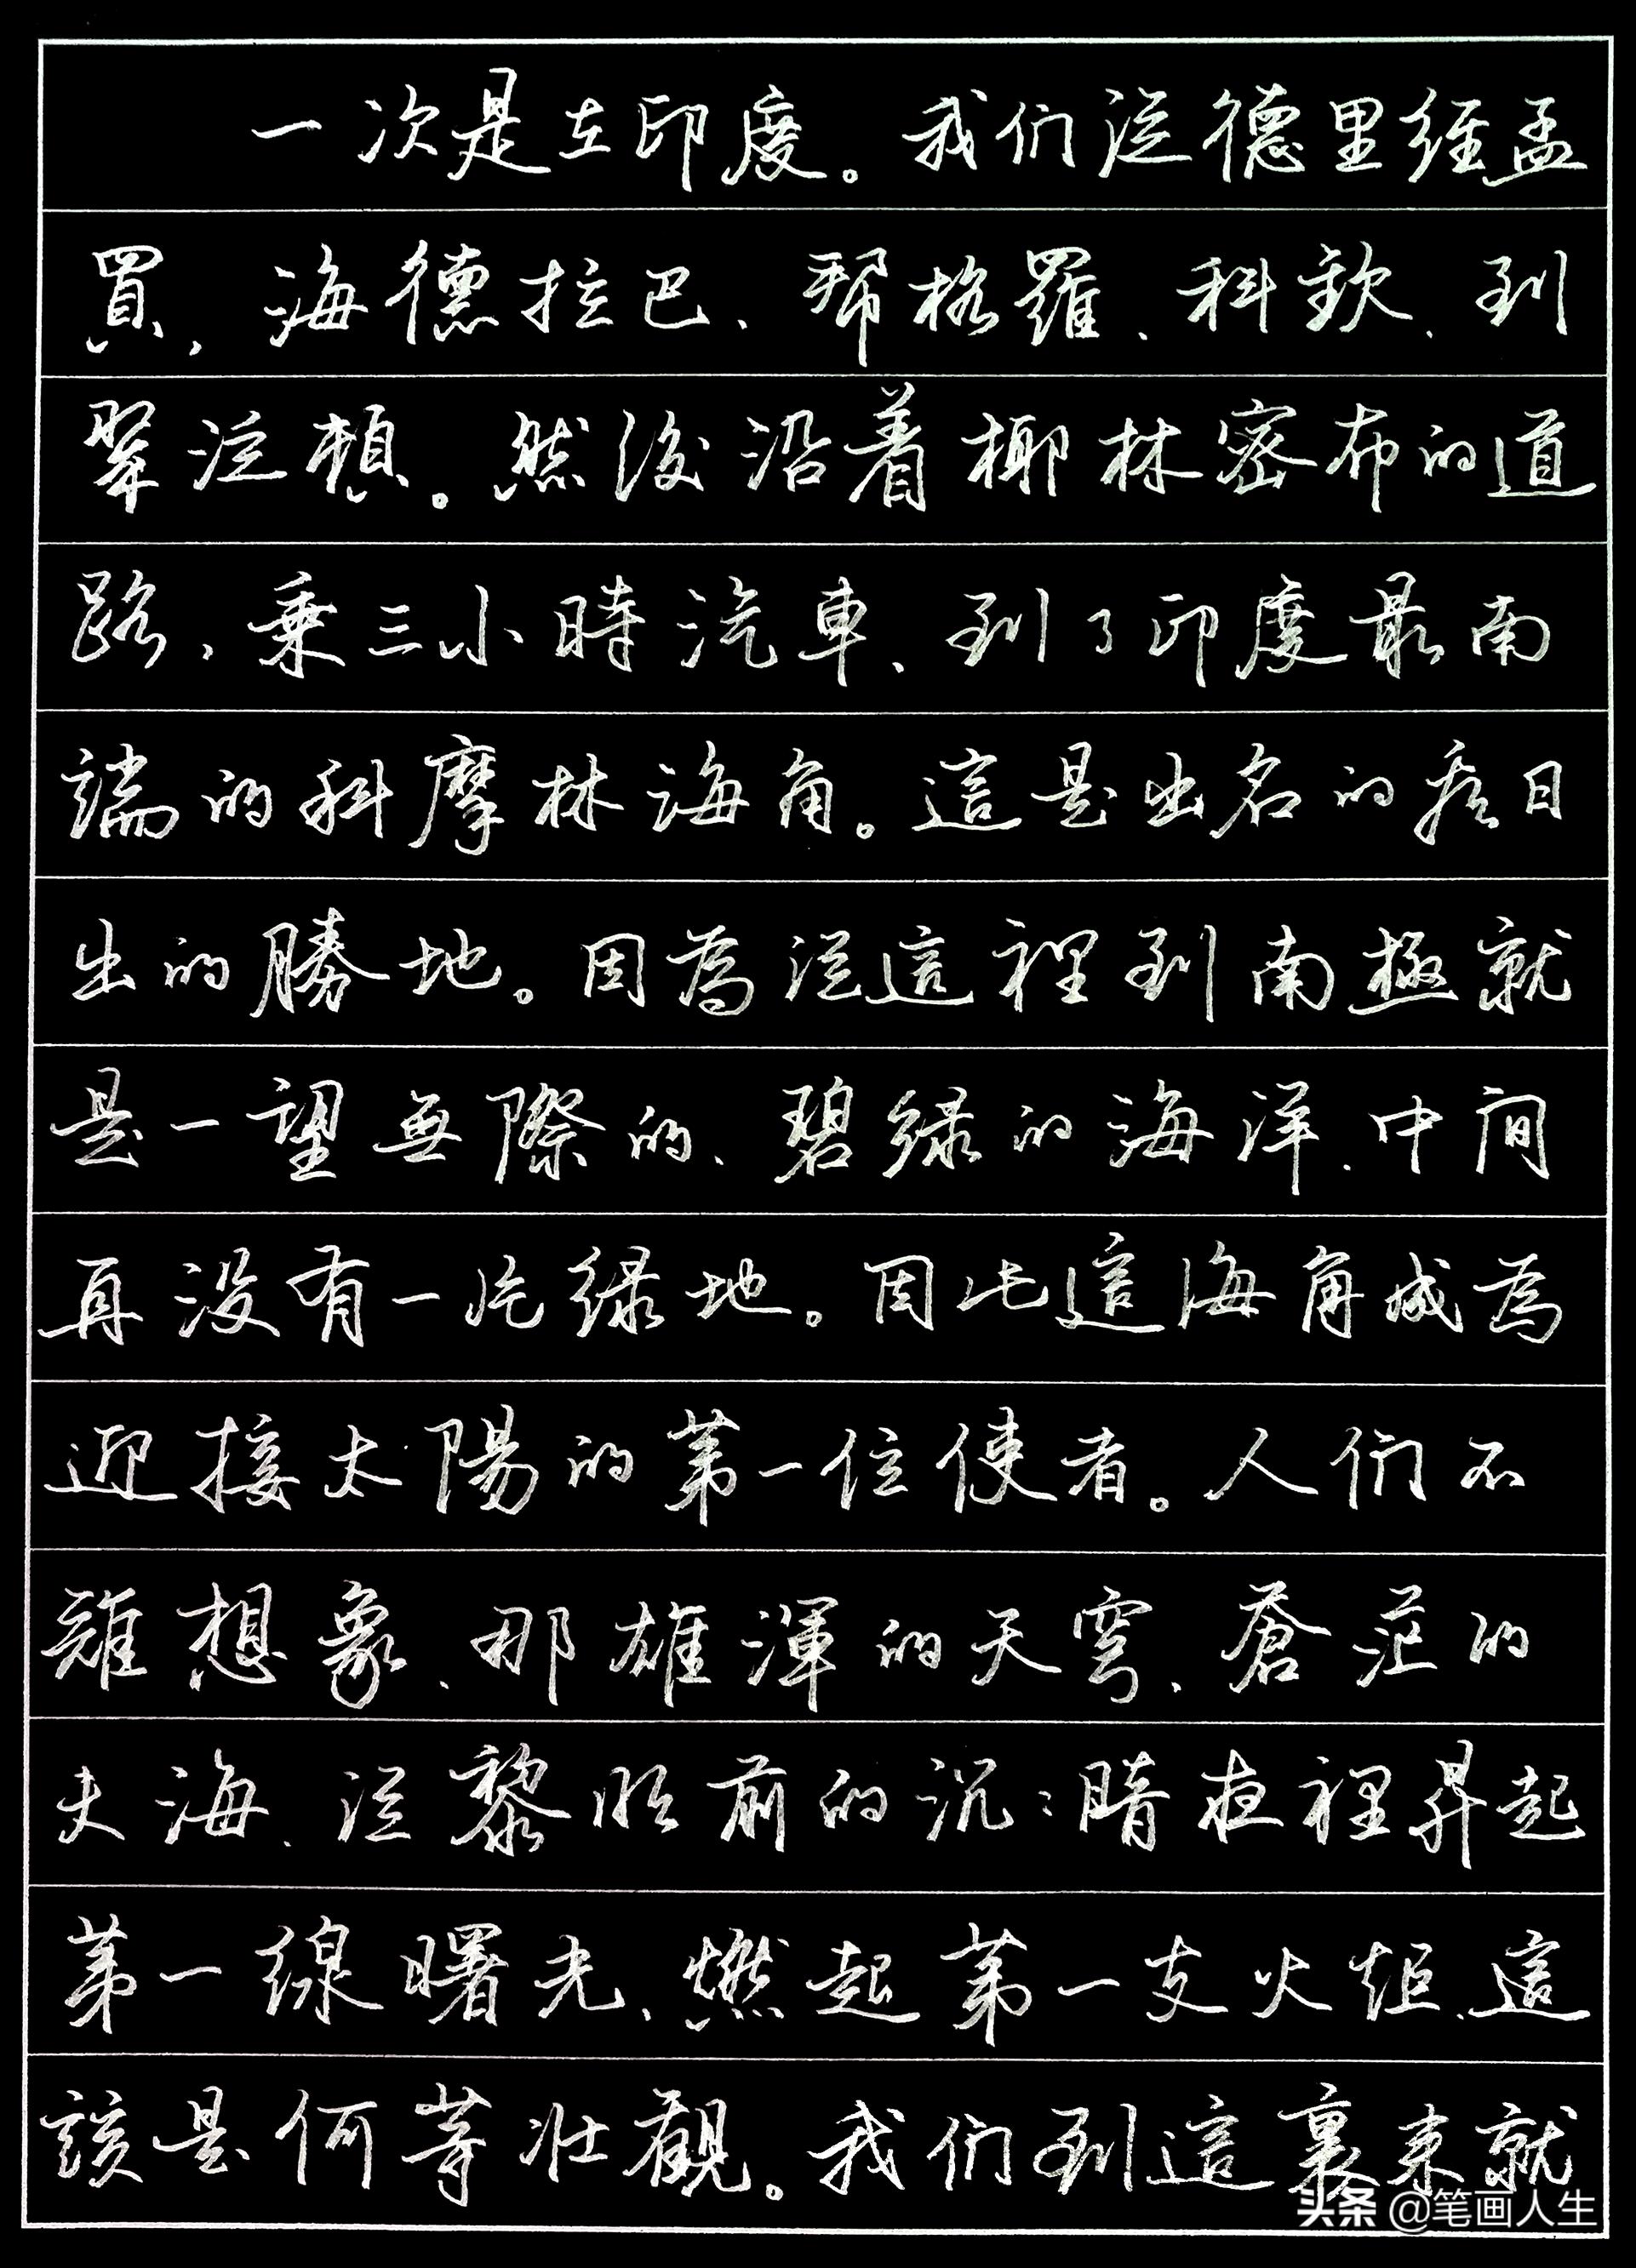 一次是在印度。我们從德里經孟
買，海德拉巴、帮格羅、科欽、到
翠泛頓。然後沿着椰林密布的道
路，乘三小時汽車、到了印度最南
端的科摩林海角。這是出名的看日
出的勝地。因為從這裡到南極就
是一望無際的、碧绿的海洋、中间
再没有一片绿地。因此這海角成為
迎接太陽的第一位使者。人们不
難想象、那雄渾的天穹、蒼茫的
大海、從黎明前的沉：暗夜裡昇起
第一線曙光、燃起第一支火炬、這
該是何等壯觀。我们到這裏来就
头条 @笔画人生